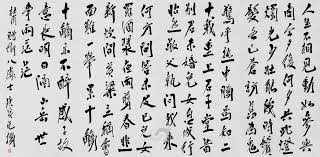 人生不相見動如參與
商今夕復何夕共此燈
燭光少壯能幾時鬢
髮各已蒼訪舊半為鬼
驚呼熱中腸焉知二
十載重上君子堂昔
別君未婚兒女忽成行
怡然敬父執問我來
何方問答未及已兒女
羅酒漿夜雨剪春韭
新炊間黃粱主稱會
面難一舉累十觴
十觴亦不醉感子故
意長明日隔山岳世
事兩茫茫
杜甫贈衛八處士